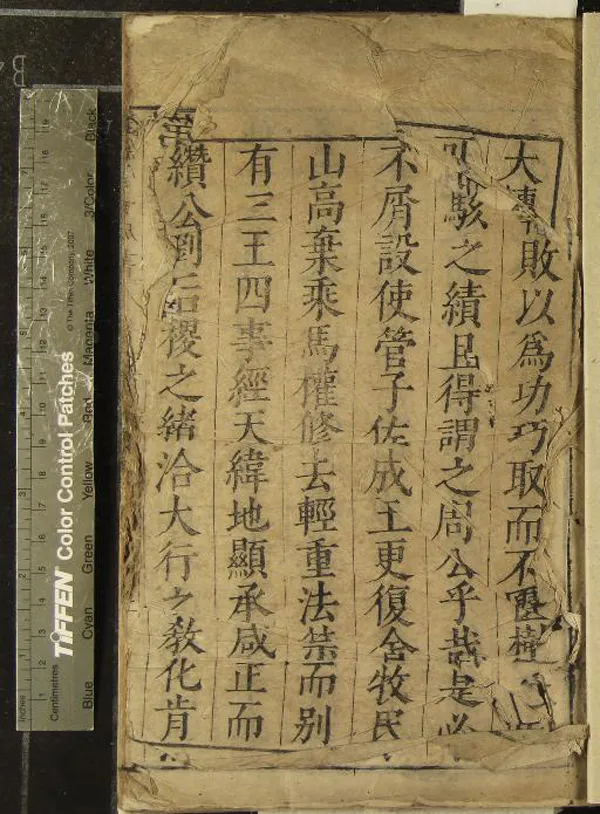 大轉敗以爲功巧取而不匱樹
駭之績且得謂之周公乎哉是必
不屑設使管子佐成王更復舍牧民
山高棄乘馬權修去輕重法禁而別
有三王四事經天緯地顯承咸正而
纘公劉后稷之緒洽大行之教化肯
Inches
Centimetres
TIFFEN Color Control Patches
© The Tiffen Company, 2007
Blue Cyan Green Yellow Red Magenta White 3/Color Black